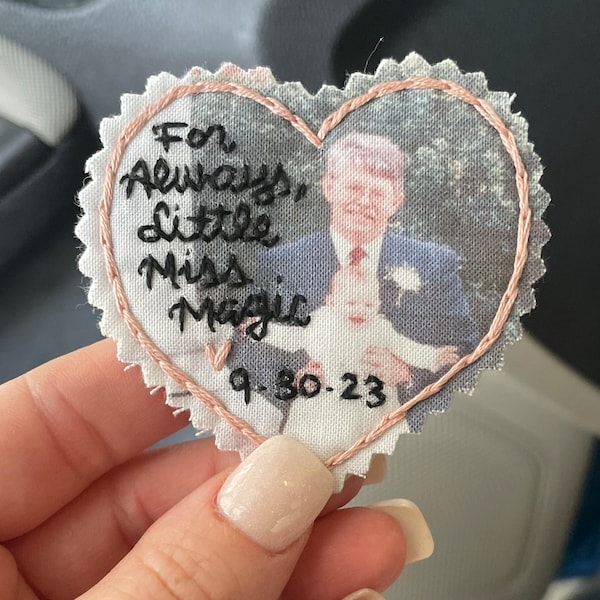 For
Always,
Little
Miss
Magic
9-30-23